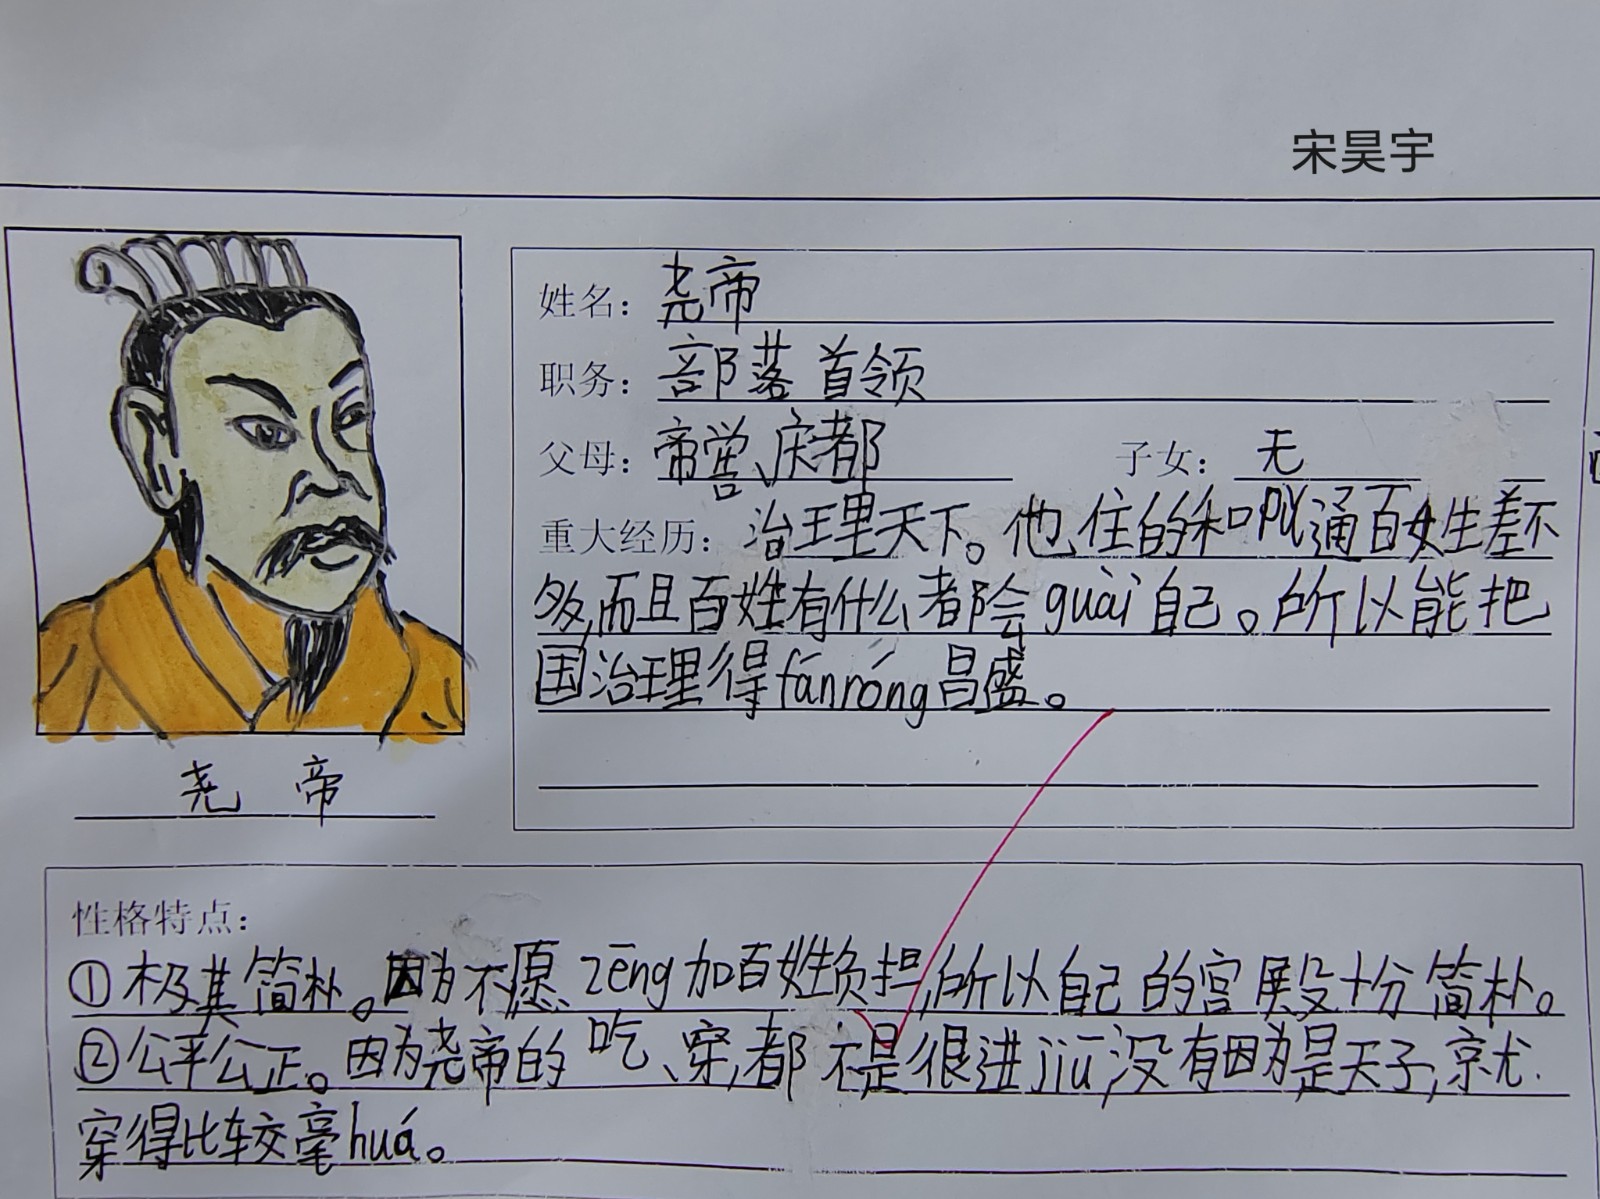 宋昊宇
姓名：尧帝
职务：部落首领
父母：帝喾、庆都 子女：无
重大经历：治理天下。他住的和pǔ通百姓生差不
多,而且百姓有什么都会guài自己。所以能把
国治理得fánróng昌盛。
尧 帝
性格特点：
①极其简朴。因为不愿zēng加百姓负担,所以自己的宫殿十分简朴。
②公平公正。因为尧帝的吃、穿,都不是很进jiū,没有因为是天子,就
穿得比较毫huá。